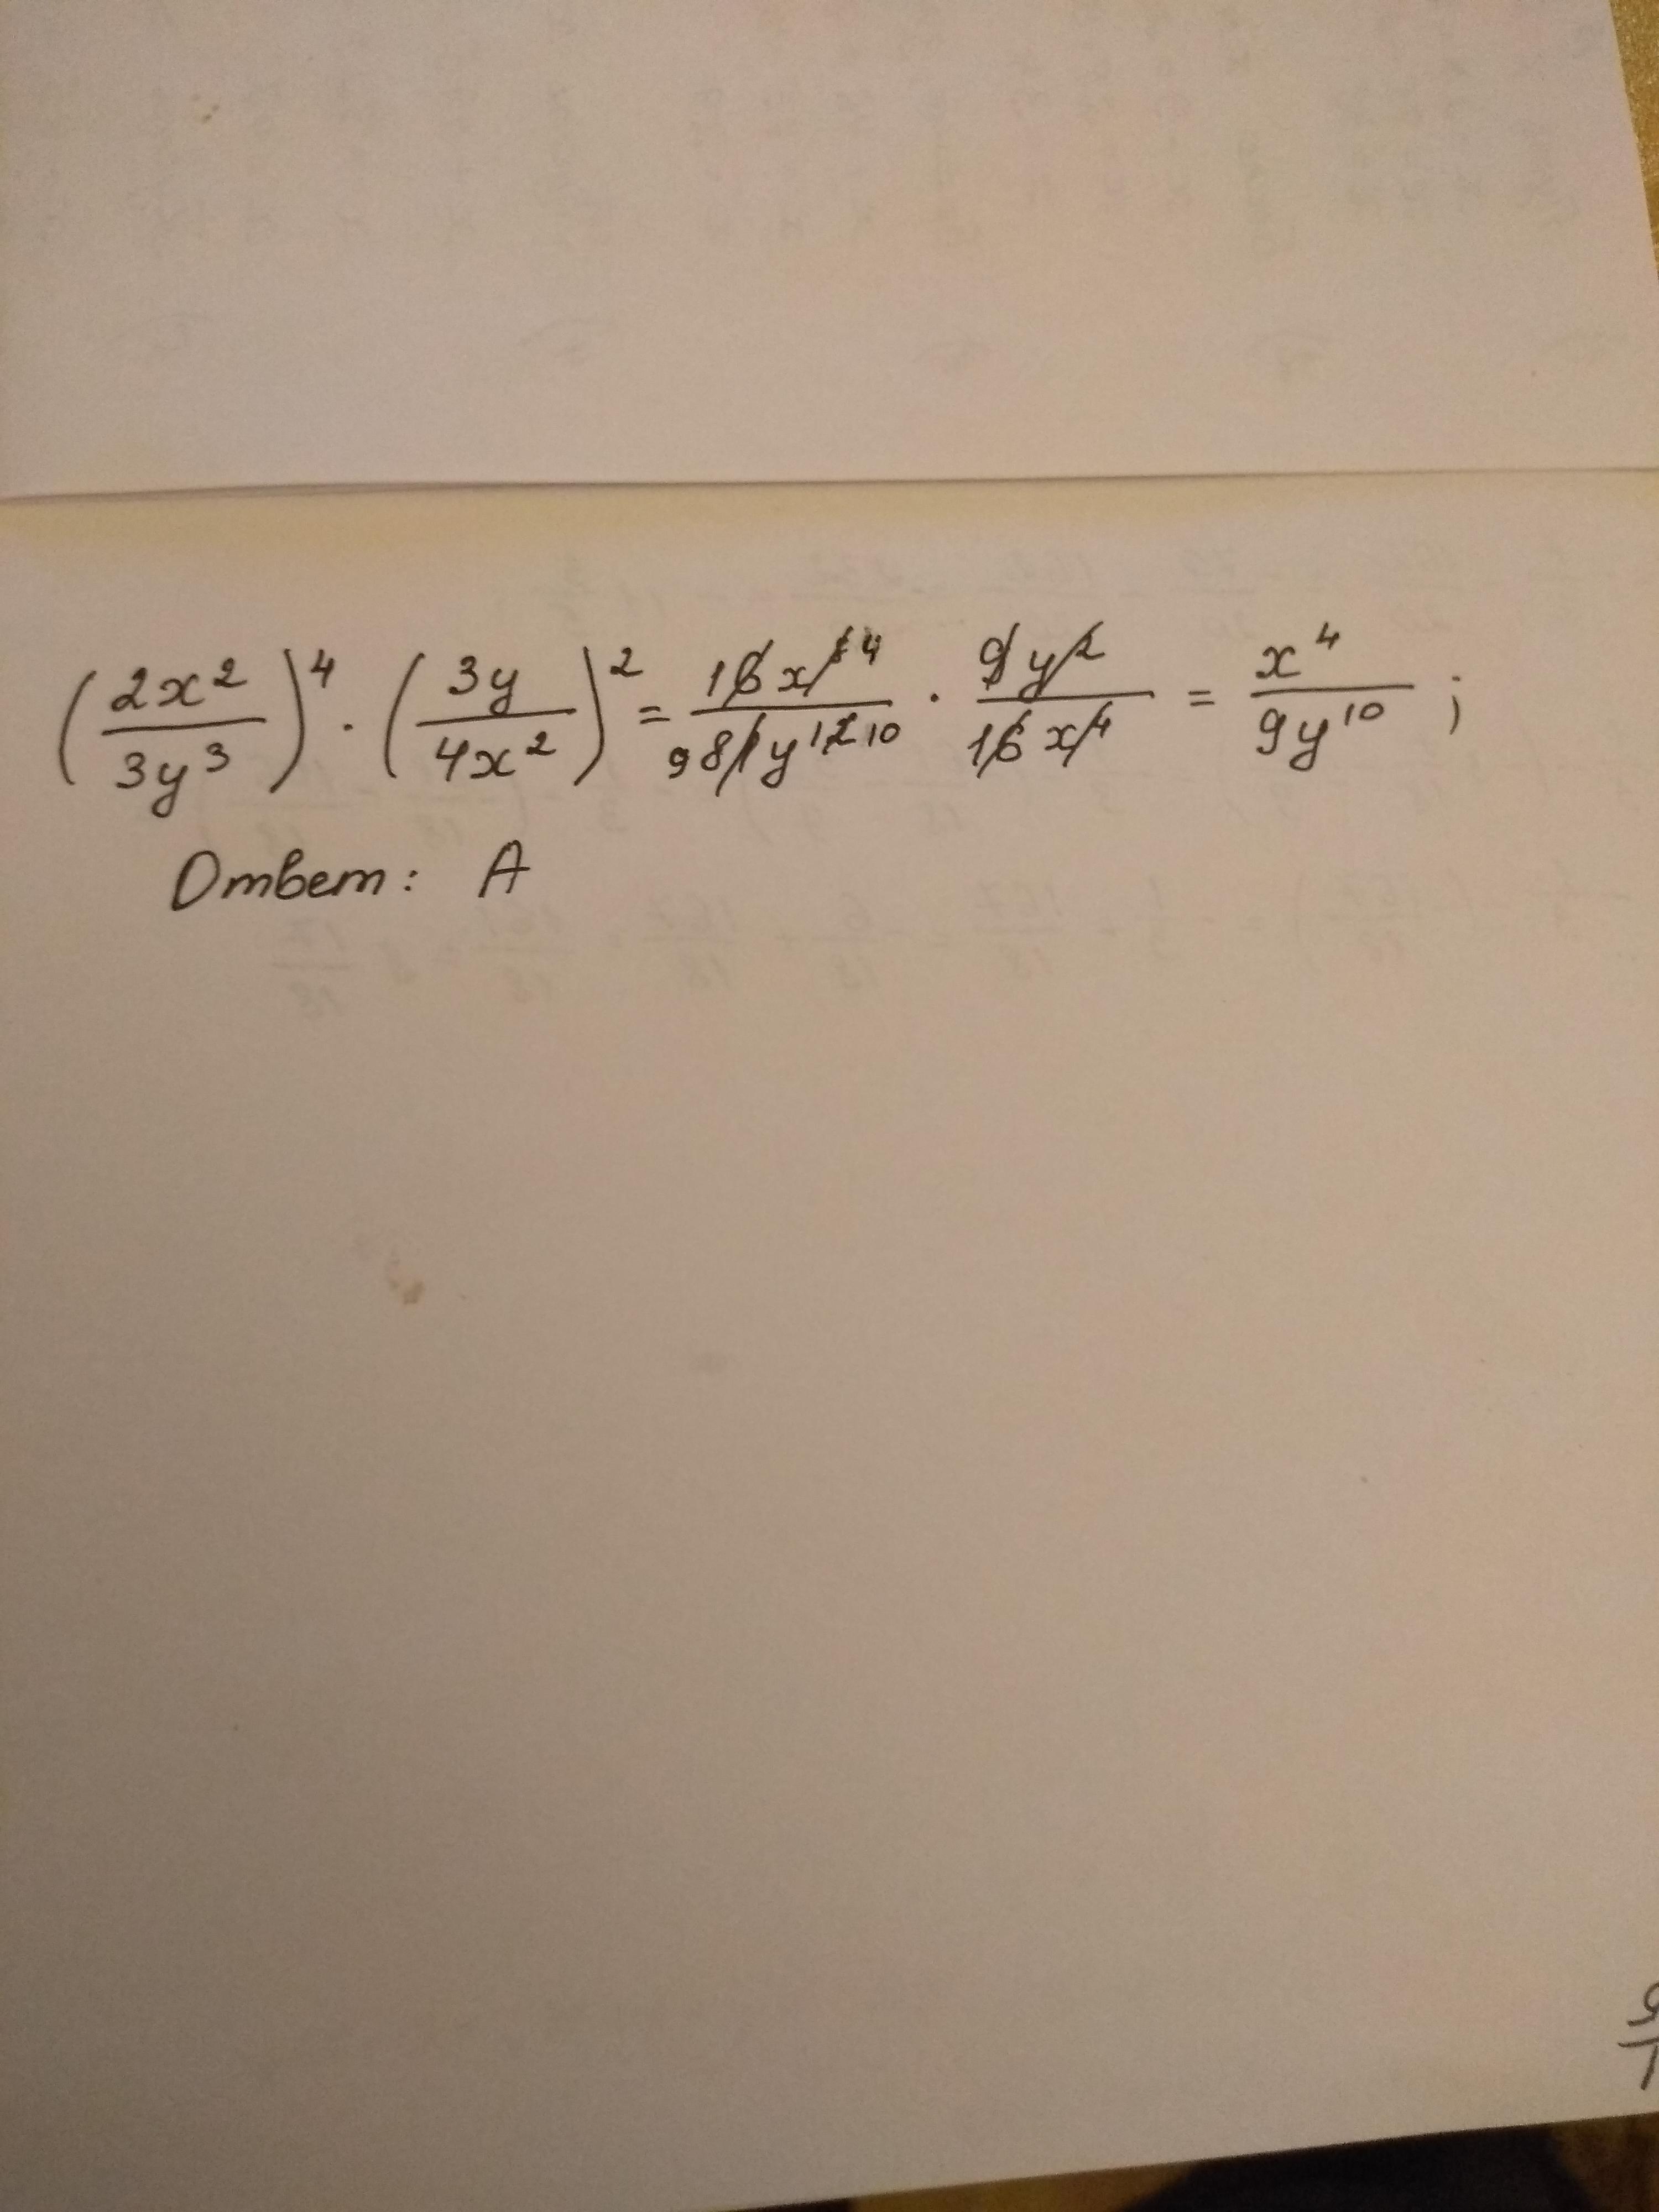 (2x²/3y³)⁴ · (3y/4x²)² = 16x⁸ ⁴/9 81y¹² ¹⁰ · 9y²/16x⁴ = x⁴/9y¹⁰ ;
Ответ: А